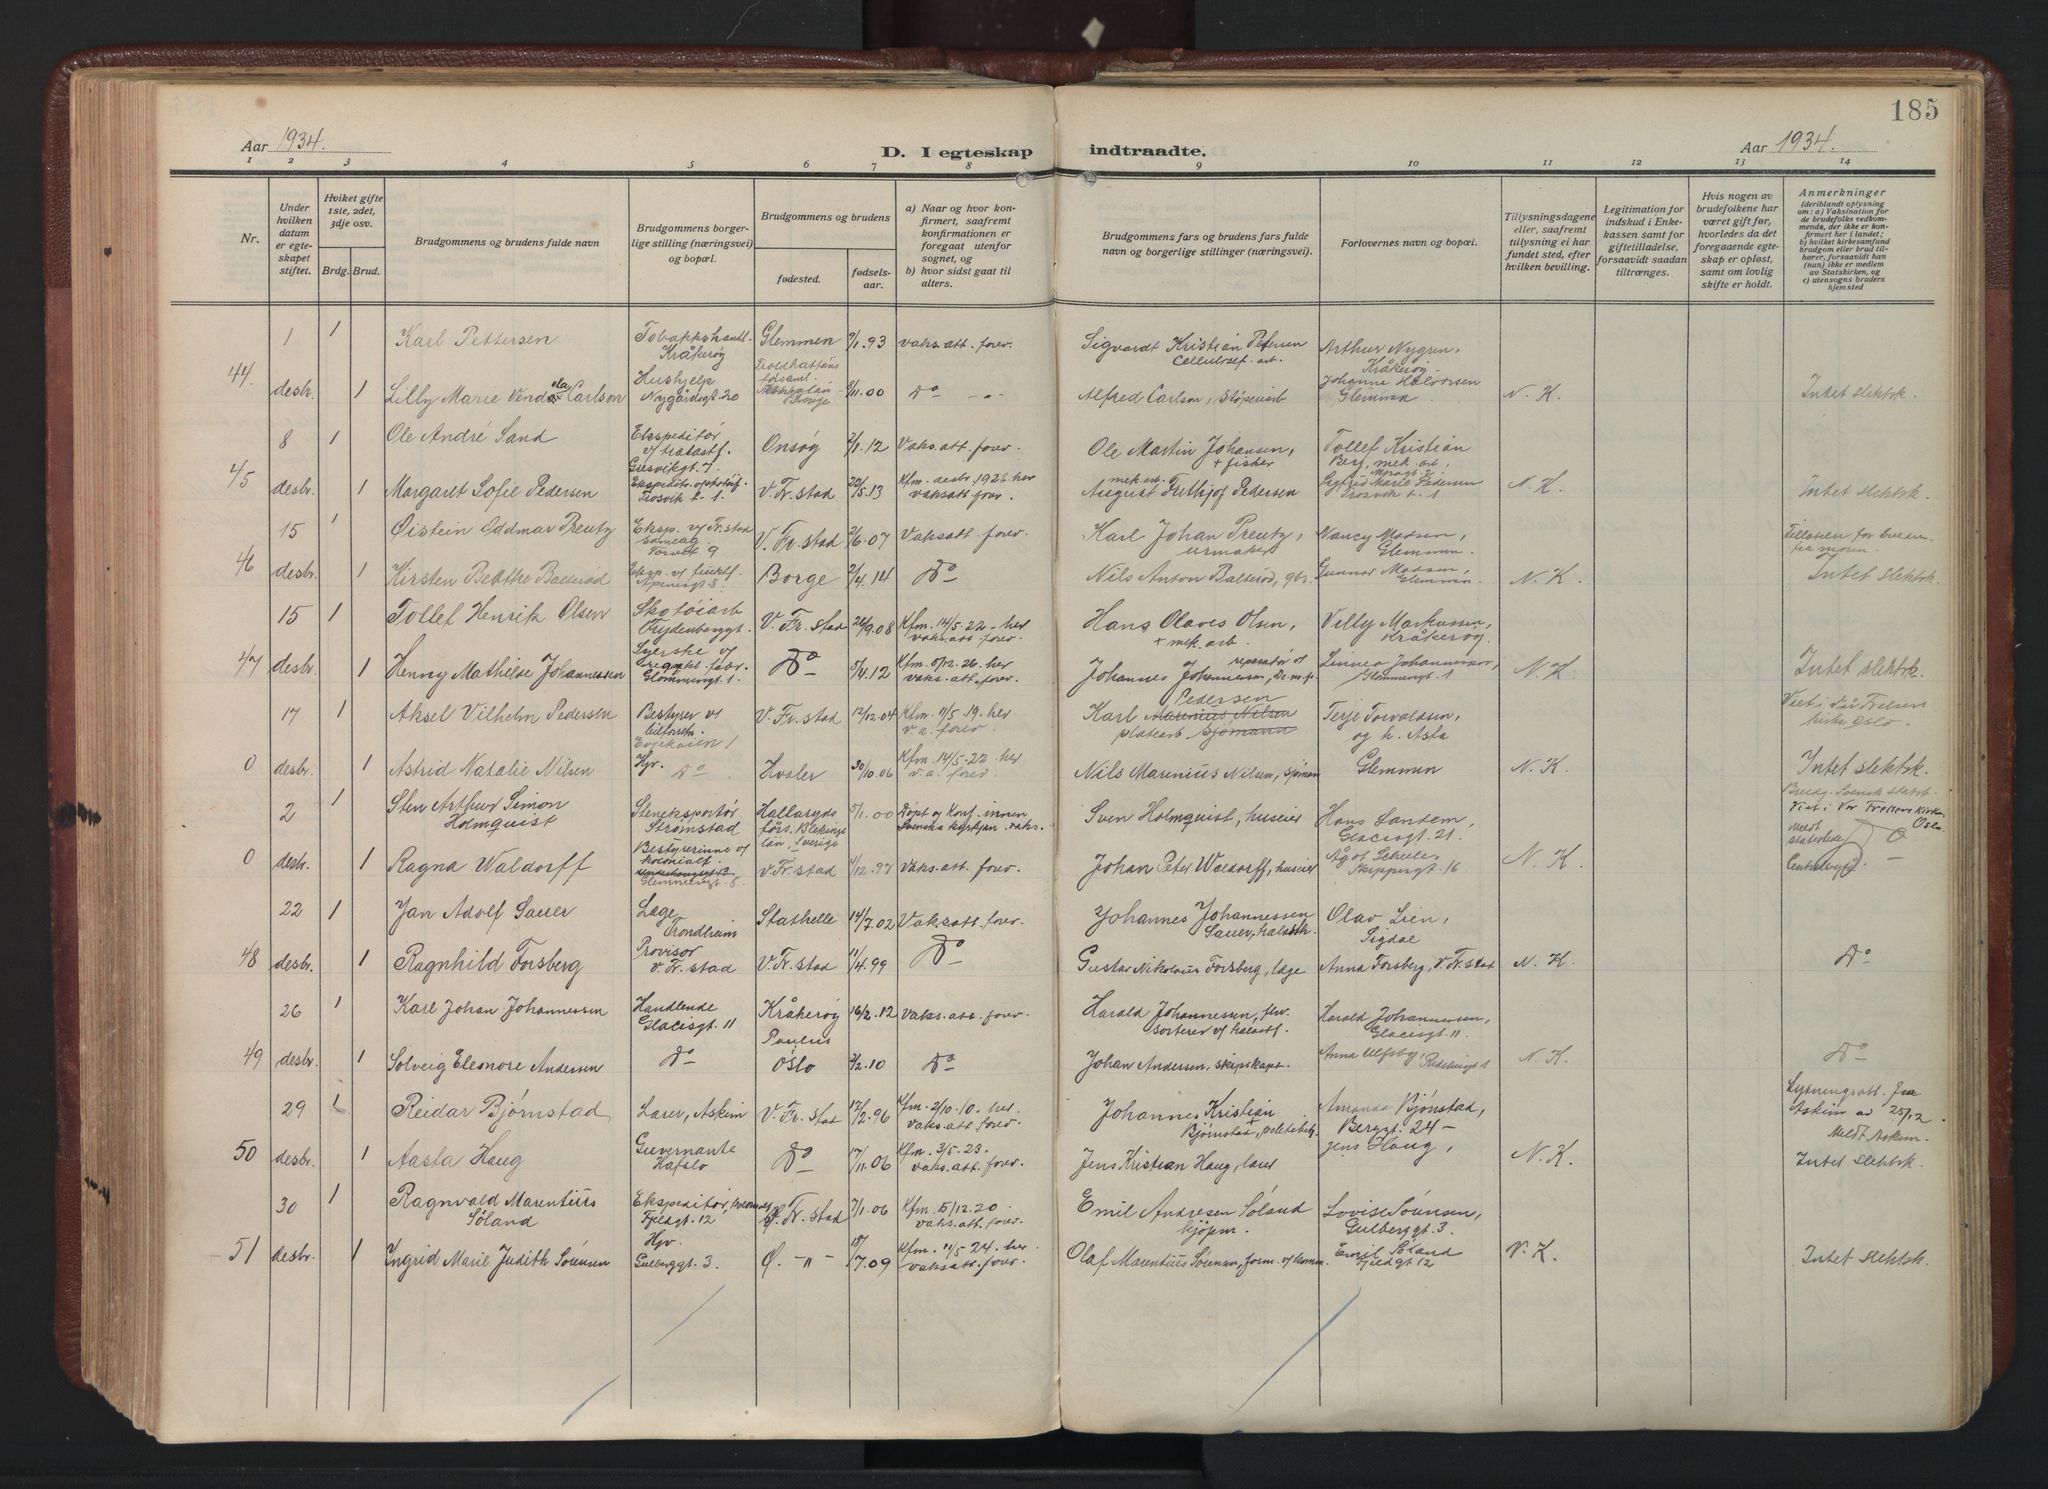 185
Aar 1934.
D. I egteskap indtraadte.
Aar 1934.
1 2 3 4 5 6 7 8 9 10 11 12 13 14
Nr.
Under hvilken datum er egteskapet stiftet.
Hviket gifte 1ste, 2det, 3dje osv.
Brdg. Brud.
Brudgommens og brudens fulde navn
Brudgommens borgerlige stilling (næringsvei) og bopæl.
Brudgommens og brudens
fødested.
fødselsaar.
a) Naar og hvor konfirmert, saafremt konfirmationen er foregaat utenfor sognet, og
b) hvor sidst gaat til alters.
Brudgommens fars og brudens fars fulde navn og borgerlige stillinger (næringsvei).
Forlovernes navn og bopæl.
Tillysningsdagene eller, saafremt tillysning ei har fundet sted, efter hvilken bevilling.
Legitimation for indskud i Enkekassen samt for giftetilladelse, forsaavidt saadan tiltrænges.
Hvis nogen av brudefolkene har været gift før, hvorledes da det foregaaende egteskap er opløst, samt om lovlig skifte er holdt.
Anmerkninger (deriblandt oplysning om: a) Vaksination for de brudefolks vedkommende, der ikke er konfirmert her i landet; b) hvilket kirkesamfund brudgom eller brud tilhører, forsaavidt han (hun) ikke er medlem av Statskirken, og c) utensogns bruders hjemsted
1 1 Karl Pettersen Tobakkshandl. Kråkerøy Glemmen 9/1.93 vaks.att. forev. Sigvardt Kristian Petersen Cellulosef. arb. Arthur Nygren, Kråkerøy
44. desbr. 1 Lilly Marie Vendela Carlson Hushjelp Nygårdsgt 20 Troldhättans församl. 9/11.00 Do -"- Alfred Carlson, støperiarb Johanne Halvorsen Glemmen N. K. Intet slektsk.
8 1 Ole André Sand Ekspeditør v/ trælastf. Gresvikgt. 7 Onsøy 2/1.12 Vaks.att. forev. Ole Martin Johansen, + fisker Tollef Kristian Berg, mek. arb.
45 desbr. 1 Margaret Sofie Pedersen Trosvik t. 1 V. Fr.stad 22/5.13 Kfm. desbr. 1928 her vaksatt. forev. mek. arb. August Frithjof Pedersen Sigfrid Marie Pedersen Trosvik t. 1 N. K. Intet slektsk.
15 1 Øistein Oddmar Preutz Eksp. v/ Fr.stad Torvet 9 V. Fr.stad 2/6.07 Vaksatt. forev. Karl Johan Preutz, urmaker Nancy Madsen, Glemmen. Tillatelse for bruden fra moren.
46 desbr. 1 Kirsten Bethe Balterød Apenesgt. 8 Borge 2/4.14 Do Nils Anton Balterød, gbr. Gunnar Madsen, Glemmen N. K. Intet slektsk.
15 1 Tollef Henrik Olsen Skotøiarb Frydenberggt. V. Fr.stad 26/9.08 Kfm. 14/5.22 - her vaks.att. forev. Hans Olaves Olsen, + mek. arb. Villy Markussen, Kråkerøy
47 desbr. 1 Henny Mathilde Johannessen Syerske v/ Glommengt. 1 Do 5/4.12 Kfm. 5/12.26. her vaks.att. forev. Johannes Johannessen, reparatør Linnea Johannessen, Glommengt 1 N. K. Intet slektsk.
17 1 Aksel Vilhelm Pedersen Bestyrer v/ bilforretn. V. Fr.stad 12/12.04 Kfm. 11/5.19. her v.a. forev. Karl Marenius Nilsen Pedersen platearb sjømann Terje Torvaldsen, og h. Asta Viet i Vår Frelsers kirke Oslo
0 desbr. 1 Astrid Natalie Nilsen Hjv. Do Hvaler 30/10.06 Kfm. 14/5.22 her v.a. forev. Nils Marenius Nilsen, sjøman Glemmen N. K. Intet slektsk.
2 1 Sten Arthur Simon Holmquist Steneksportør Strømstad Hallaryds förs. Blekinge län, Sverige 5/1.00 Døpt og Konf. innen Svenska kyrkjan. vaks. Sven Holmquist, huseier Hans Landem, Glacisgt. 21. Brudg. Svensk statsb. Viet i Vor Frelsers Kirke Oslo.
0 desbr. 1 Ragna Waldorff Bestyrerinne v/ kolonialf. Glemmengt. 8 V. Fr.stad 1/12.97 Vaks.att. forev. Johan Peter Waldorff, huseier Ågot Schule, Skippergt. 16 N. K. Meldt Centralbyrå
22 1 Jan Adolf Sauer Læge Trondheim Stathelle 14/7.02 Vaksatt. forev. Johannes Johannessen Sauer, Olav Lien, Sigdal
48 desbr. 1 Ragnhild Forsberg Provisor V. Fr.stad V. Fr.stad 11/4.99 Do Gustav Nikolaus Forsberg, læge Anna Forsberg, V. Fr.stad N. K. Do
26 1 Karl Johan Johannessen Handlende Glacisgt. 11 Kråkerøy 16/2.12 Vaks.att. forev. Harald Johannessen, sorterer v/ trælastf. Harald Johannessen, Glacisgt. 11.
49 desbr. 1 Solveig Eleonore Andersen Do Paulus Oslo 2/2.10 Do Johan Andersen, skipskapt. Anna Ulfsby, N. K. Do
29 1 Reidar Bjørnstad Lærer, Askim V. Fr.stad 17/2.96 Kfm. 2/10.10. her vaks.att. forev. Johannes Kristian Bjørnstad, + politibetj. Amanda Bjønstad, Berggt. 24 - Lysningsatt. fra Askim av 25/12 Meldt Askim.
50 desbr. 1 Aasta Haug Guvernante Hafslo Do 17/11.06 Kfm. 3/5.23. vaks.att. forev. Jens Kristian Haug, lærer Jens Haug, N. K. Intet slektsk.
30 1 Ragnvald Marentius Søland Ekspeditør, kolonialf. Fjeldgt. 12 Ø. Fr.stad 7/1.06 Kfm. 5/12.20. vaks.att. forev. Emil Andresen Søland kjøpm. Lovise Sørensen, Gulberggt. 3.
51 desbr. 1 Ingrid Marie Judith Sørensen Hjv. Gulberggt. 3. Ø. -"- 18/7.09 Kfm. 11/5.24. her. vaksatt. forev. Olaf Marentius Sørensen, form. v/ komm. Emil Søland Fjeldgt 12 N. K. Intet slektsk.